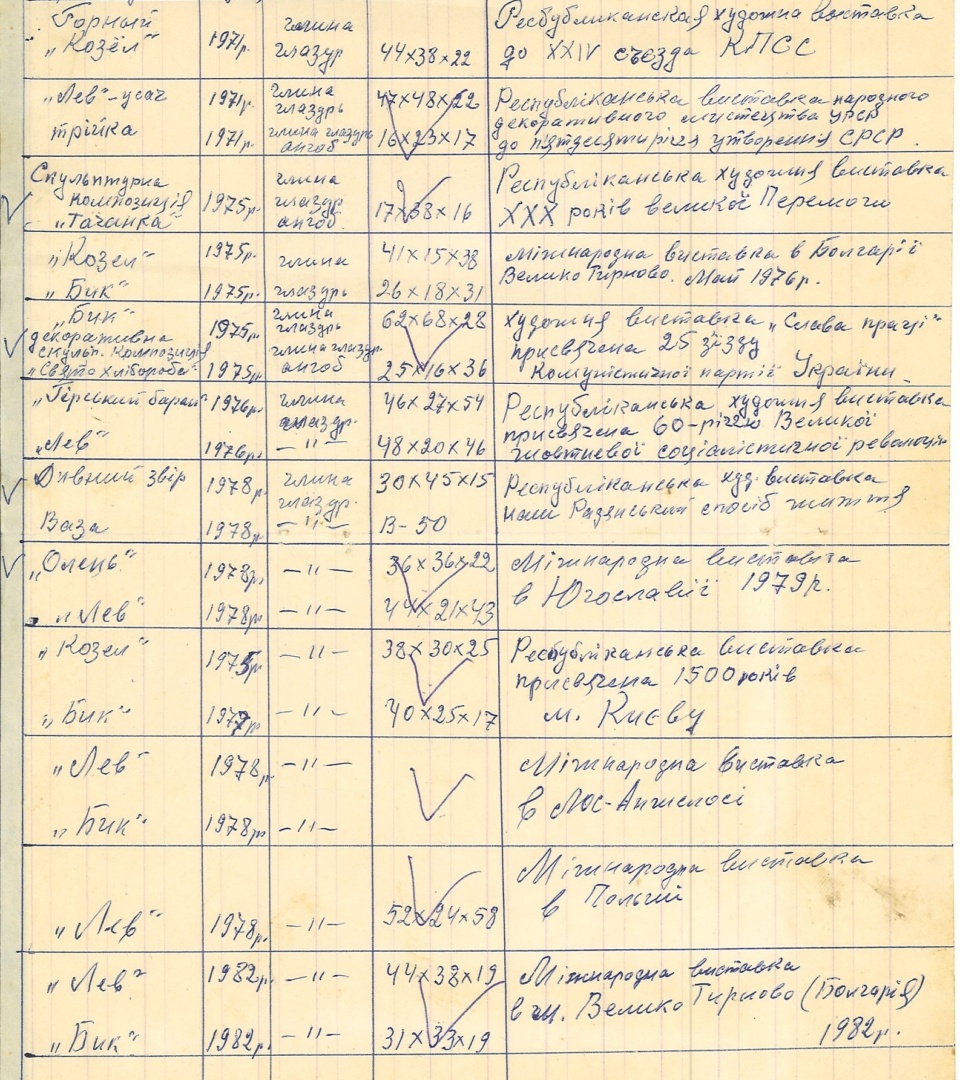 Горный 1971р. глина Республиканская художна виставка
„Козёл" глазур 44×38×22 до XXIV съезда КПСС
„Лев"-усач 1971р. глина глазурь 47×48×22 Республіканська виставка народного
декоративного мистецтва УРСР
трійка 1971р. глина глазурь ангоб 16×23×17 до пятдесятиріччя утворення СРСР.
Скульптурна глина Республіканська художня виставка
композиція 1975р. глазур 17×38×16 XXX років великої Перемоги
„Тачанка" ангоб.
„Козел" 1975р. глина 41×15×38 Міжнародна виставка в Болгарії
„Бик" 1975р. глазурь 26×18×31 Велико Тирново. Май 1976р.
„Бик" 1975р. глина глазурь 62×68×28 художня виставка „Слава праці"
декоративна присвячена 25 зїзду
скульп. композиція глина глазур.
„Свято хлібороба" 1975р. ангоб 25×16×36 Комуністичної партії України
„Гірський баран" 1976р. глина глазур. 46×27×54 Республіканська художня виставка
присвячена 60-річчю Великої
„Лев" 1976р. —"— 48×20×46 жовтневої соціалістичної революції
Дивний звір 1978р. глина глазур. 30×45×15 Республіканська худ. виставка
наш Радянський спосіб життя
Ваза 1978р. —"— В-50
„Олень" 1978р. —"— 36×36×22 Міжнародна виставка
„Лев" 1978р. —"— 44×21×43 в Югославії 1979р.
„Козел" 1975р —"— 38×30×25 Республіканська виставка
присвячена 1500 років
„Бик" 1979р. —"— 40×25×17 м. Києву
„Лев" 1978р. —"— Міжнародна виставка
„Бик" 1978р. —"— в Лос-Анжелосі
Міжнародна виставка
„Лев" 1978р. —"— 52×24×58 в Польщі
„Лев" 1982р. —"— 44×38×19 Міжнародна виставка
в м. Велико Тирново (Болгарія)
„Бик" 1982р. —"— 31×33×19 1982р.